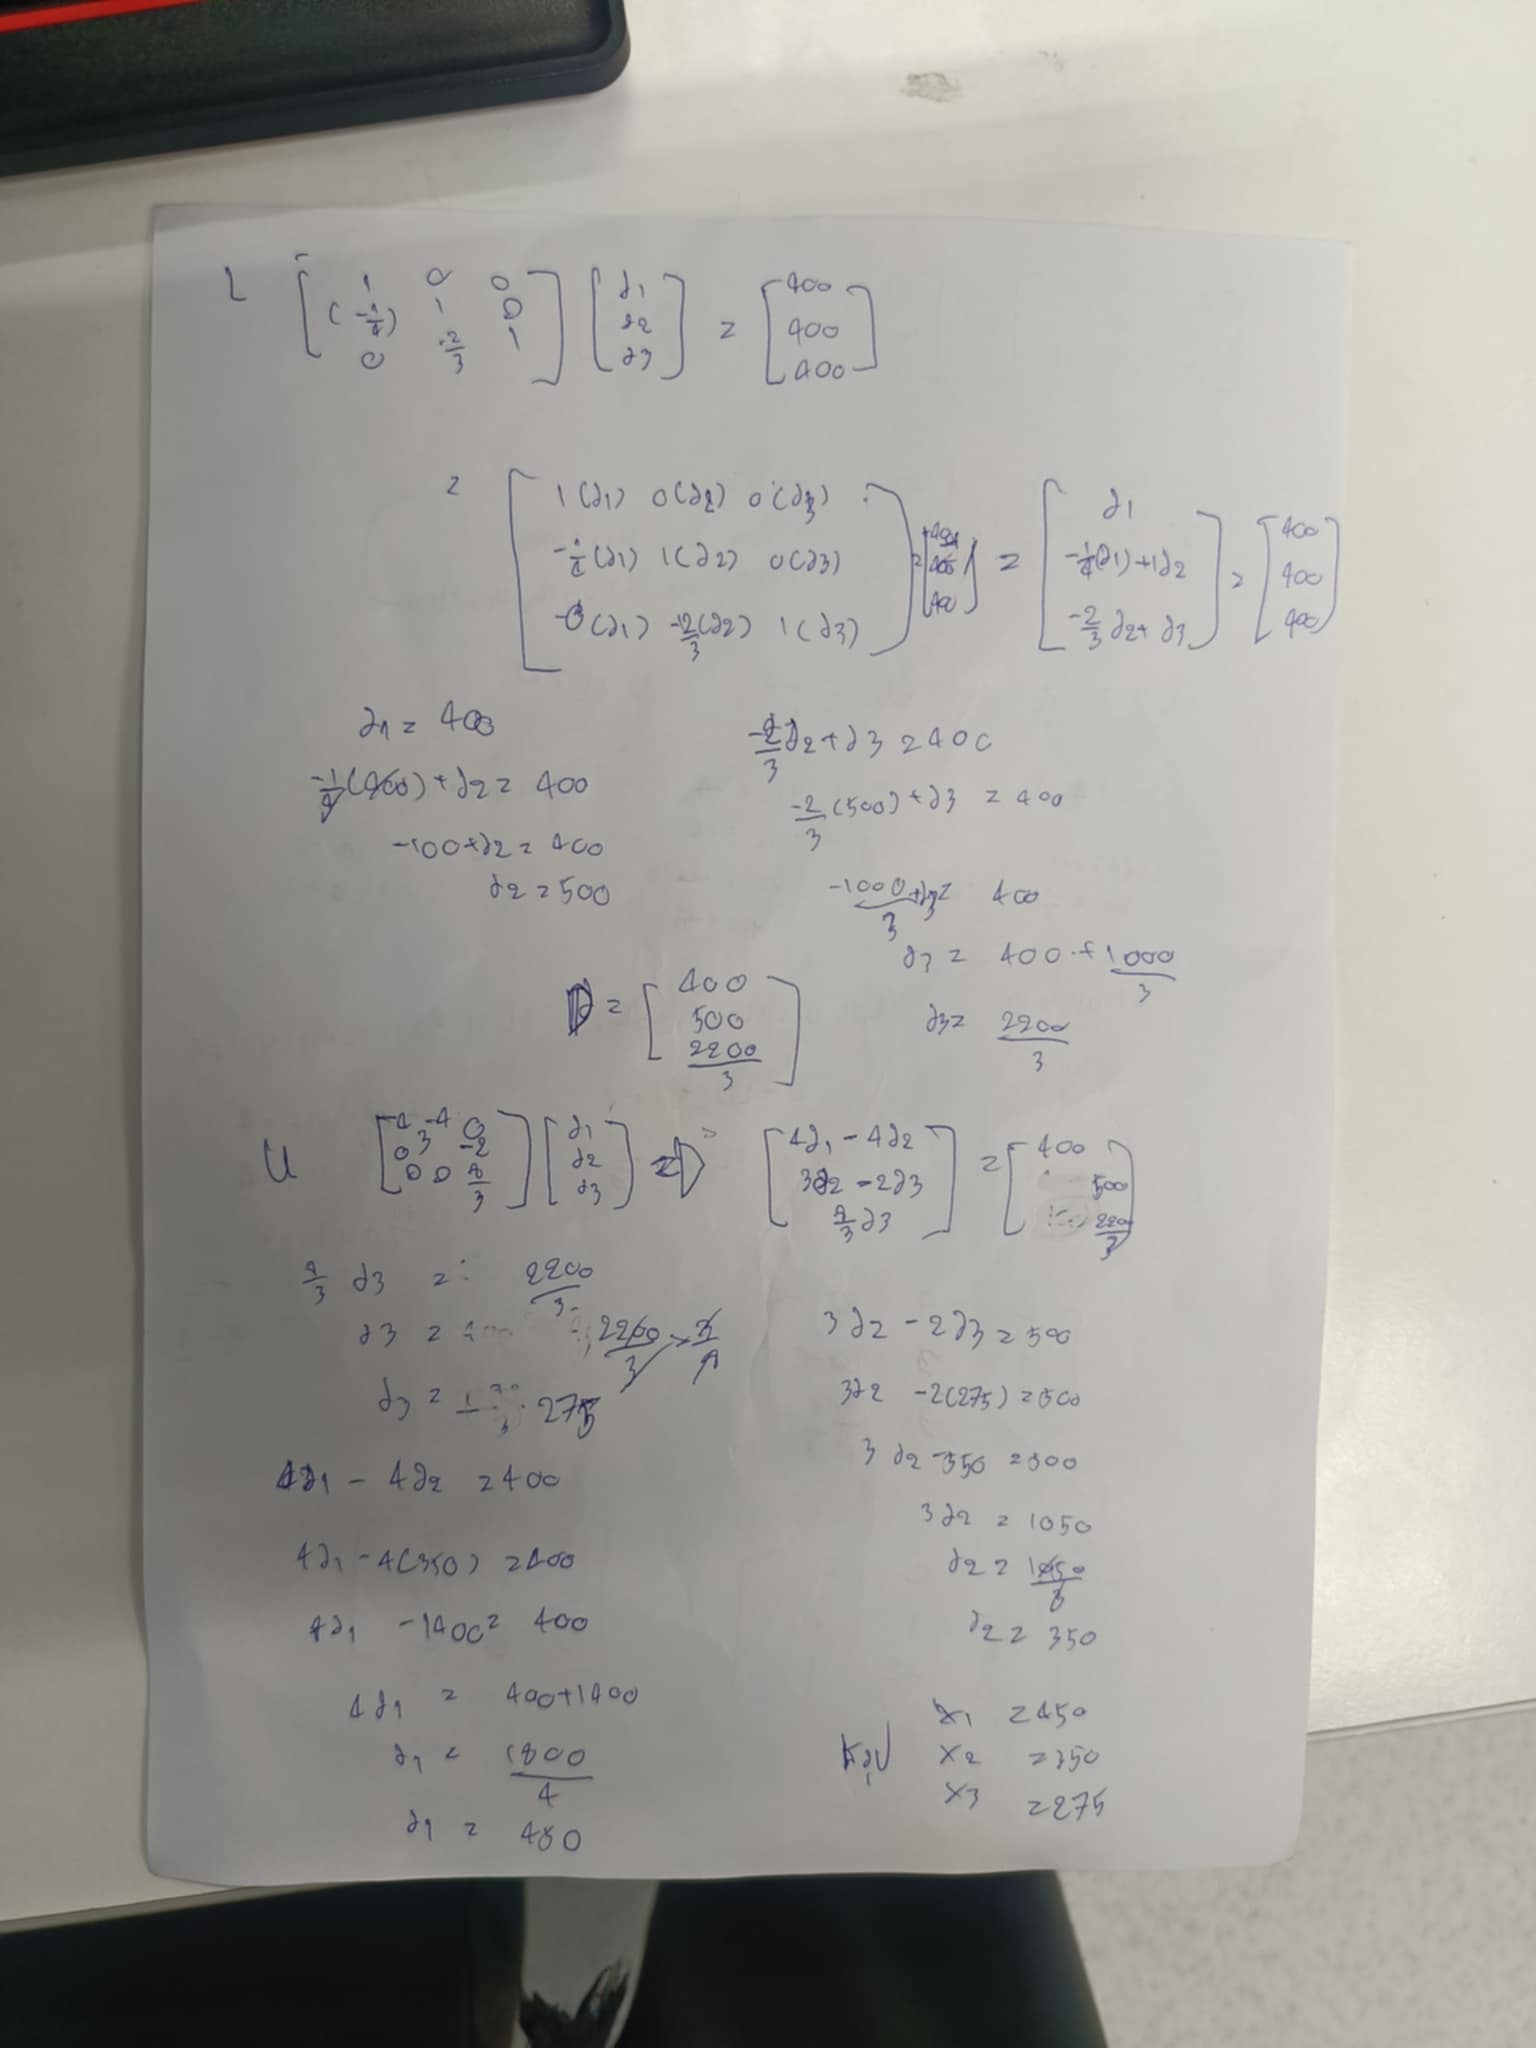 L [ 1 0 0 ] [ d1 ] = [ 400 ]
[ (-1/4) 1 0 ] [ d2 ] [ 400 ]
[ 0 -2/3 1 ] [ d3 ] [ 400 ]
= [ 1(d1) 0(d2) 0(d3) ] = [ d1 ] = [ 400 ]
[ -1/4(d1) 1(d2) 0(d3) ] [ -1/4(d1)+1d2 ] [ 400 ]
[ -0(d1) -2/3(d2) 1(d3) ] [ -2/3 d2+d3 ] [ 400 ]
d1 = 400
-1/4(400)+d2 = 400
-100+d2 = 400
d2 = 500
-2/3 d2+d3 = 400
-2/3(500)+d3 = 400
-1000/3+d3 = 400
d3 = 400+1000/3
d3 = 2200/3
D = [ 400 ]
[ 500 ]
[ 2200/3 ]
U [ 4 -4 0 ] [ d1 ] = D [ 4d1-4d2 ] = [ 400 ]
[ 0 3 -2 ] [ d2 ] [ 3d2-2d3 ] [ 500 ]
[ 0 0 8/3 ] [ d3 ] [ 8/3 d3 ] [ 2200/3 ]
8/3 d3 = 2200/3
d3 = 2200/3 × 3/8
d3 = 275
4d1 - 4d2 = 400
4d1 - 4(350) = 400
4d1 - 1400 = 400
4d1 = 400+1400
d1 = 1800/4
d1 = 450
3d2 - 2d3 = 500
3d2 - 2(275) = 500
3d2 - 550 = 500
3d2 = 1050
d2 = 1050/3
d2 = 350
สรุป x1 = 450
x2 = 350
x3 = 275